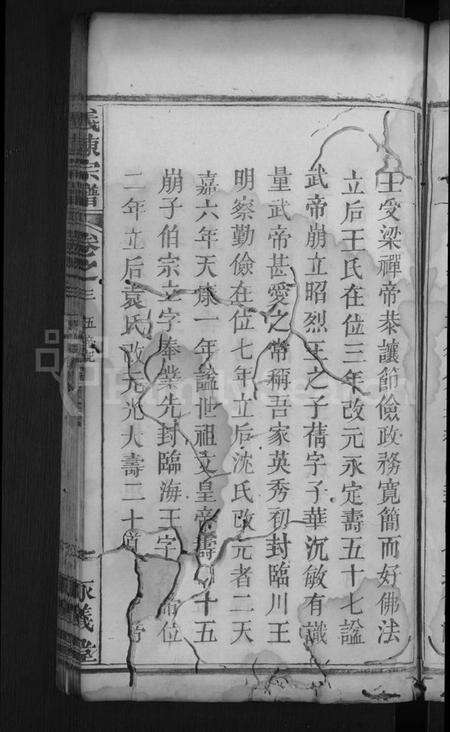 王受梁禪帝恭讓節儉政務寬簡而好佛法
立后王氏在位三年改元永定壽五十七謚
武帝崩立昭烈王之子蒨字子華沉敏有識
量武帝甚愛之常稱吾家英秀初封臨川王
明察勤儉在位七年立后沈氏改元者二天
嘉六年天康一年謚世祖文皇帝壽四十五
崩子伯宗立字奉業先封臨海王字 位
二年立后袁氏改元光大壽二十
義陳宗譜
卷之三
永義堂